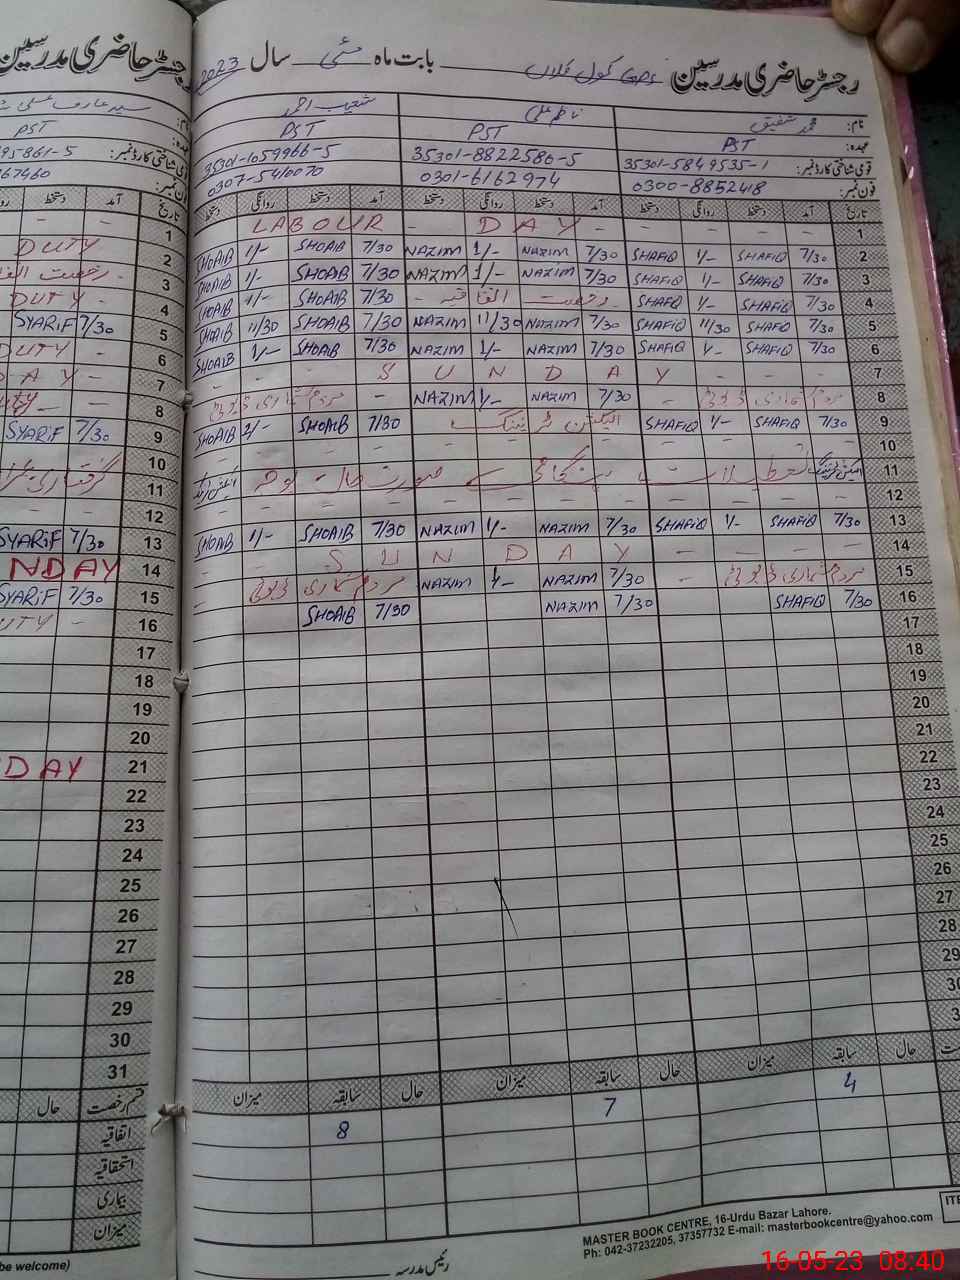 رجسٹر حاضری مدرسین GPS کول کلاں بابت ماہ مئی سال 2023
رجسٹر حاضری مدرسین
نام: محمد شفیق ناظم علی شعیب احمد
عہدہ: PST PST PST
قومی شناختی کارڈ نمبر: 35301-5849535-1 35301-8822586-5 35301-1059966-5
فون نمبر: 0300-8852418 0301-6162974 0307-5410070
نام: سید عارف علی
عہدہ: PST
قومی شناختی کارڈ نمبر: 95861-5
فون نمبر: 67460
تاریخ آمد دستخط روانگی دستخط آمد دستخط روانگی دستخط آمد دستخط روانگی دستخط
تاریخ آمد دستخط
1 LABOUR - DAY - - - -
2 SHOAIB 1/- SHOAIB 7/30 NAZIM 1/- NAZIM 7/30 SHAFIQ 1/- SHAFIQ 7/30
3 SHOAIB 1/- SHOAIB 7/30 NAZIM 1/- NAZIM 7/30 SHAFIQ 1/- SHAFIQ 7/30
4 SHOAIB 1/- SHOAIB 7/30 - رخصت اتفاقیہ - SHAFIQ 1/- SHAFIQ 7/30
5 SHOAIB 11/30 SHOAIB 7/30 NAZIM 11/30 NAZIM 7/30 SHAFIQ 11/30 SHAFIQ 7/30
6 SHOAIB 1/- SHOAIB 7/30 NAZIM 1/- NAZIM 7/30 SHAFIQ 1/- SHAFIQ 7/30
7 - - - S U N D A Y - - -
8 مردم شماری ڈیوٹی - NAZIM 1/- NAZIM 7/30 - مردم شماری ڈیوٹی
9 SHOAIB 2/- SHOAIB 7/30 الیکشن ٹریننگ SHAFIQ 1/- SHAFIQ 7/30
10 - - - - - - - - - -
11 الیکشن ٹریننگ تعطیلات ہنگامی صورت حال
12 - - - - - - - - - -
13 SHOAIB 1/- SHOAIB 7/30 NAZIM 1/- NAZIM 7/30 SHAFIQ 1/- SHAFIQ 7/30
14 - - S U N D A Y - - - -
15 - مردم شماری ڈیوٹی NAZIM 1/- NAZIM 7/30 - مردم شماری ڈیوٹی
16 SHOAIB 7/30 NAZIM 7/30 SHAFIQ 7/30
17
18
19
20
21
22
23
24
25
26
27
28
29
30
3
1 - -
2 DUTY
3 رخصت
4 DUTY -
5 SYARIF 7/30
6 DUTY -
7 D A Y -
8 DUTY - -
9 SYARIF 7/30
10
11 گرفتاری
12
13 SYARIF 7/30
14 NDAY
15 SYARIF 7/30
16 UTY -
17
18
19
20
21 DAY
22
23
24
25
26
27
28
29
30
31
حال سابقہ میزان حال سابقہ میزان حال سابقہ میزان
4 7 8
قسم رخصت حال
اتفاقیہ
استحقاقیہ
بیماری
میزان
رئیس مدرسہ
MASTER BOOK CENTRE, 16-Urdu Bazar Lahore.
Ph: 042-37232205, 37357732 E-mail: masterbookcentre@yahoo.com
ITE
be welcome)
16-05-23 08:40